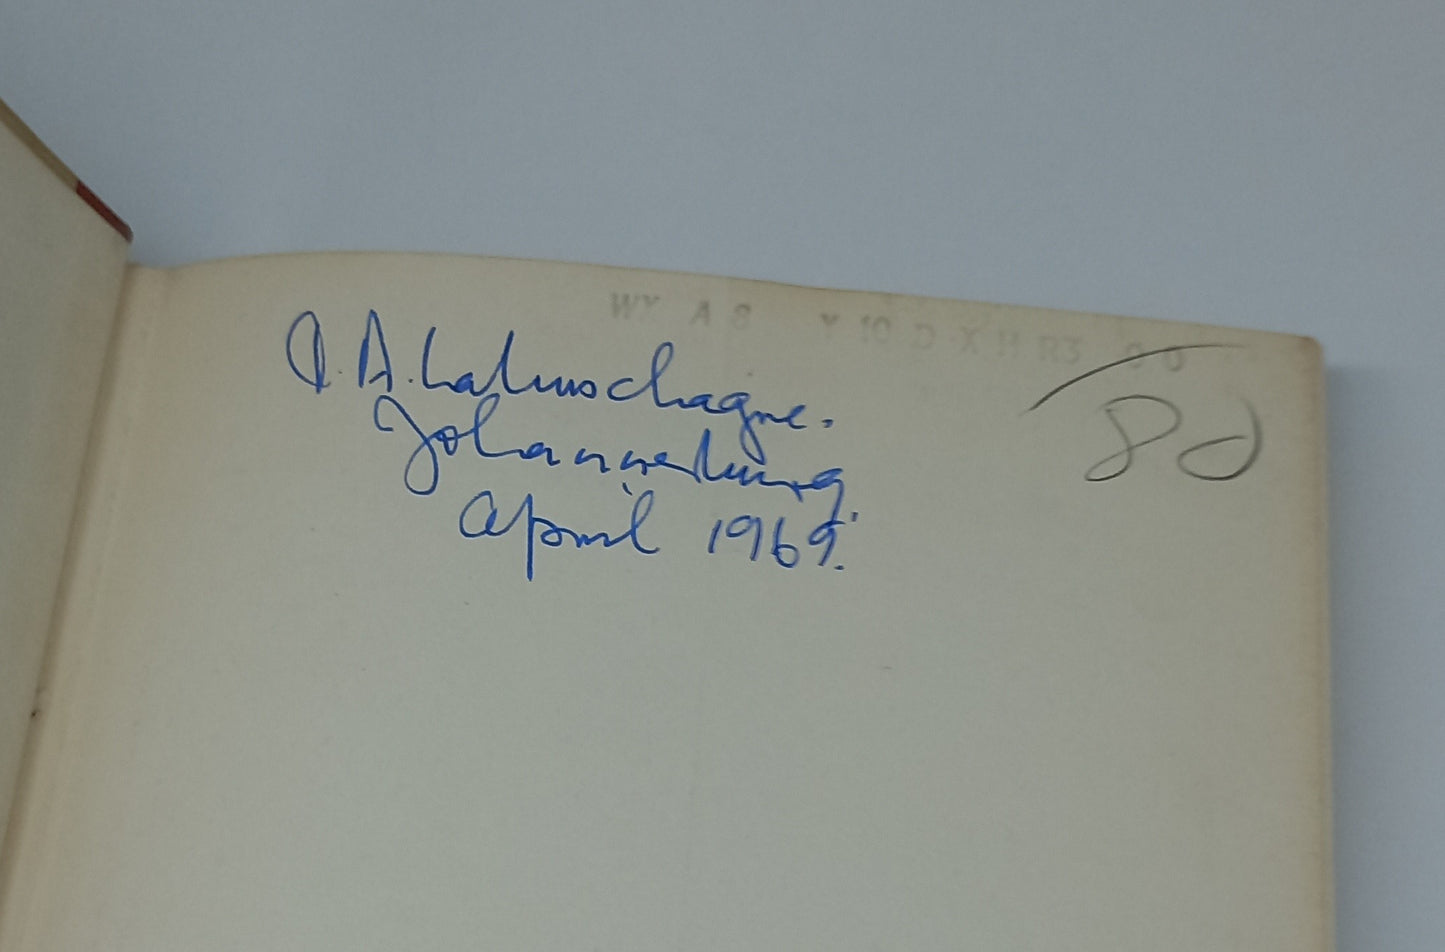 WY A 8 10 D X H R3 00
A. Labuschagne.
Johannesburg.
April 1969.
80